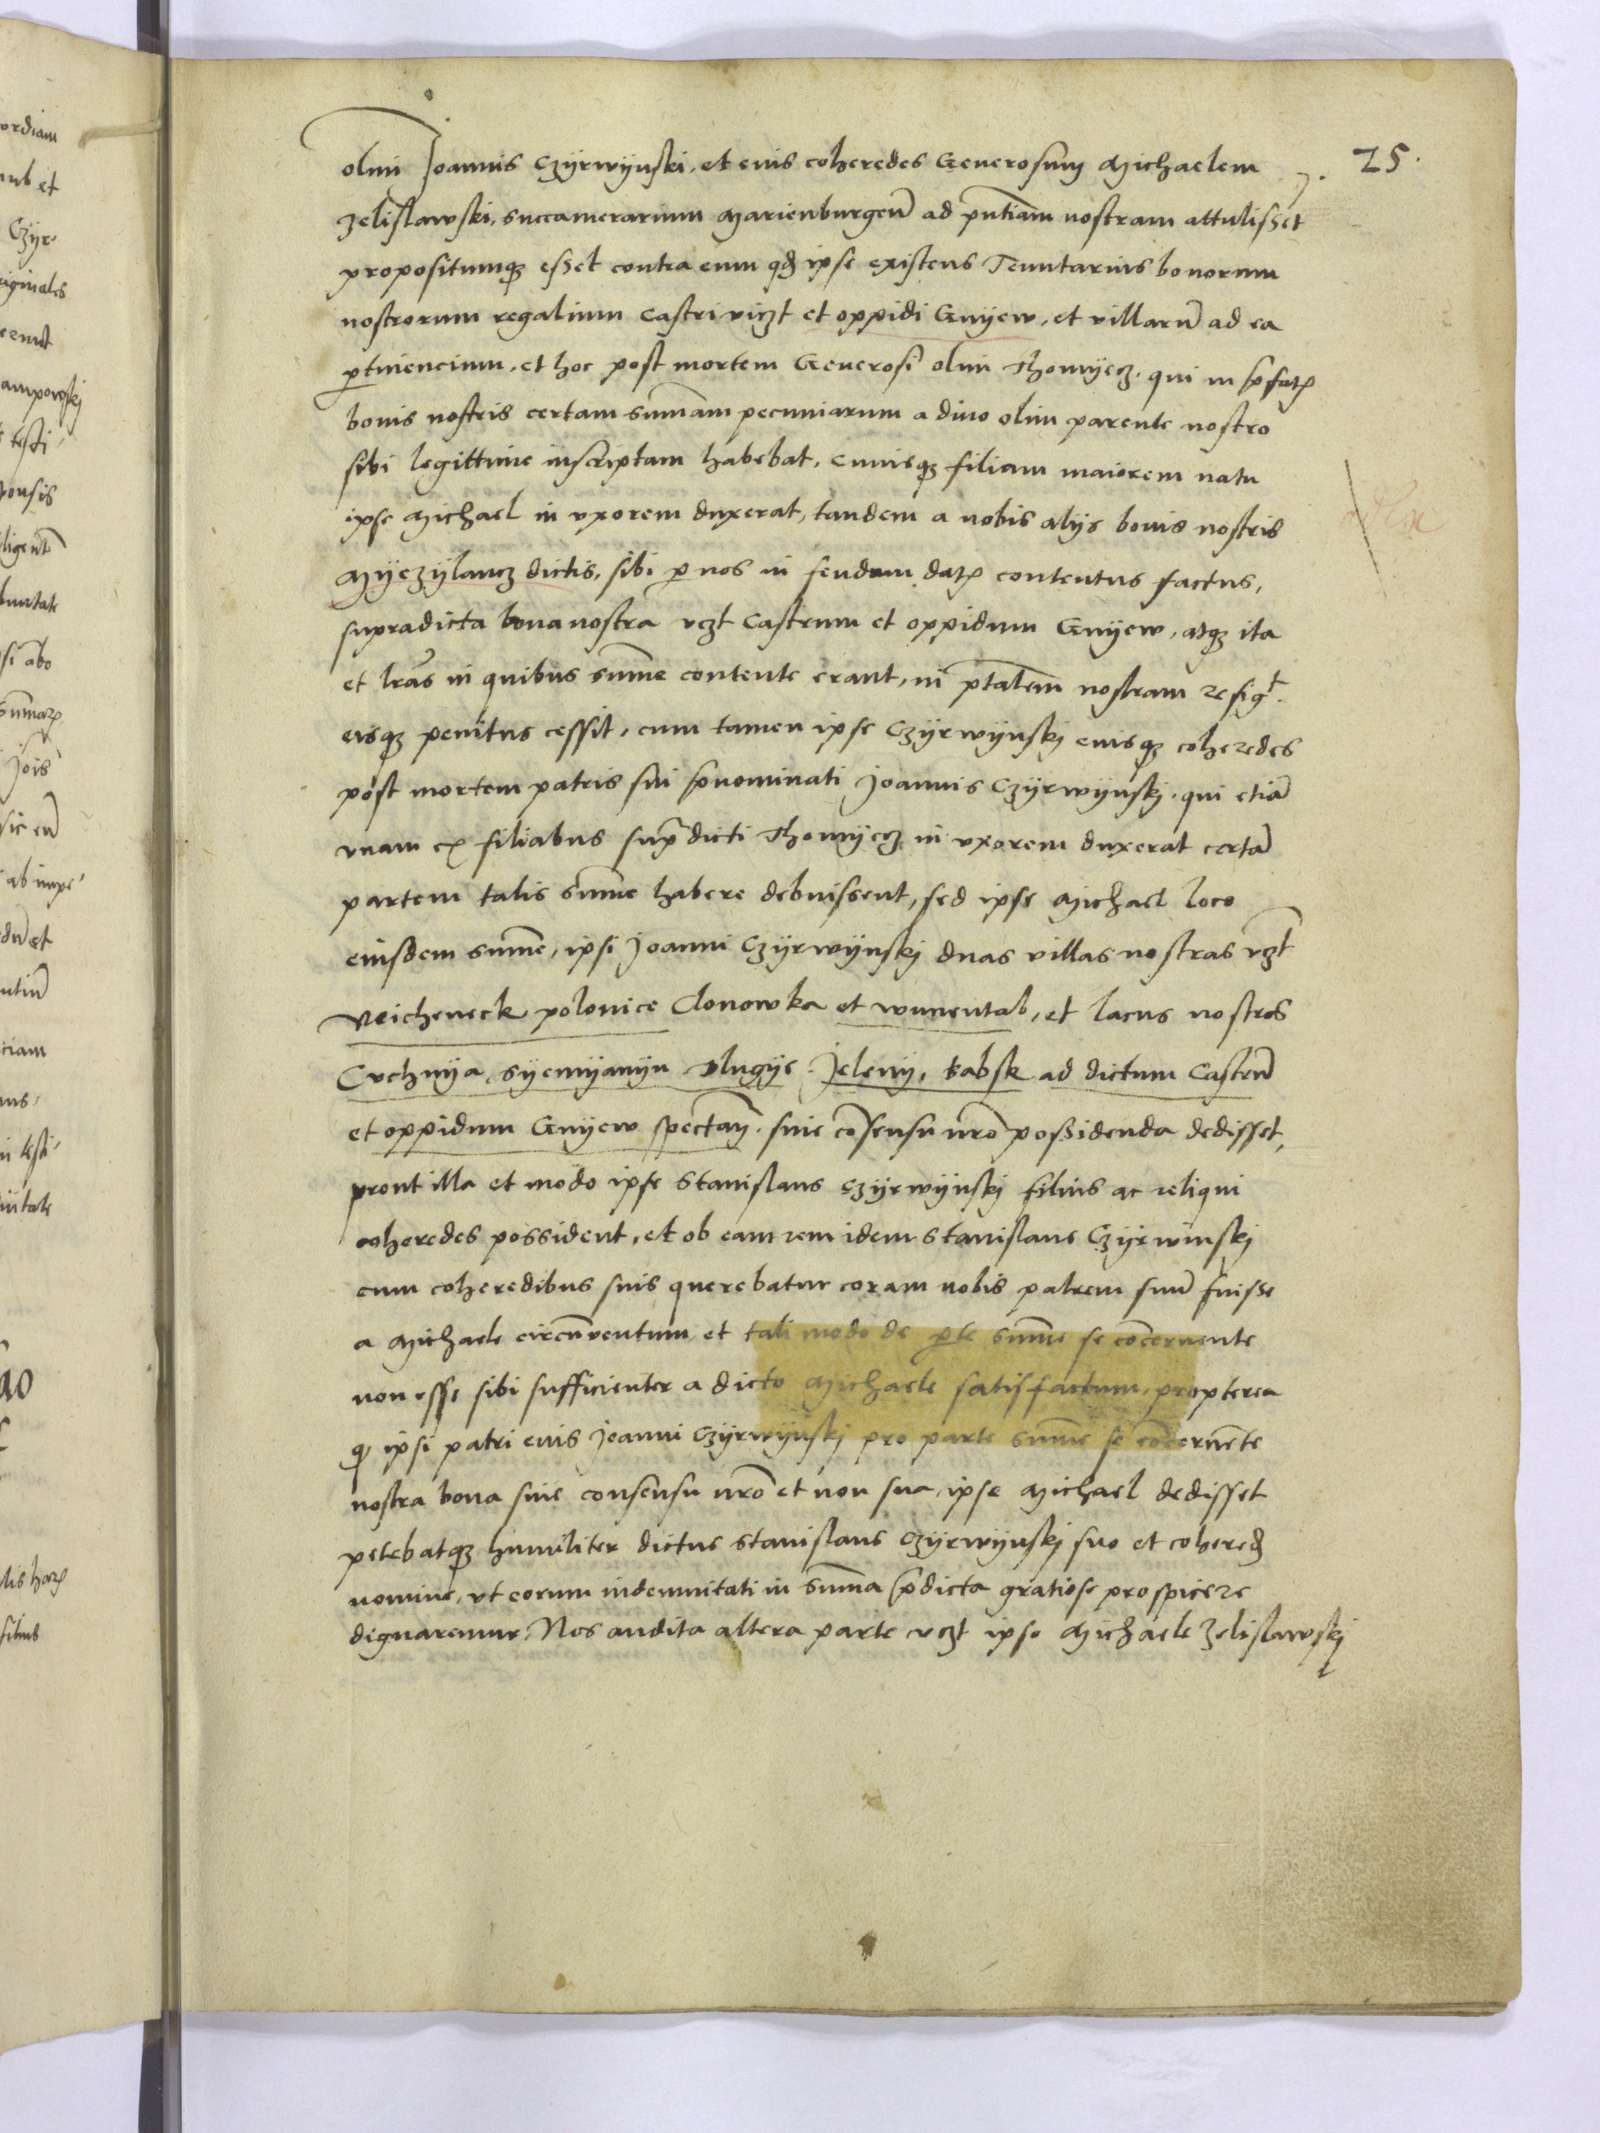 25.
olim Joannis Czÿrwÿnski, et eius coheredes Generosum Michaelem
Zelislawski, succamerarium Marienburgen̄ ad pn̄tiam nostram attulisset
propositumqꝫ esset contra eum qđ ipse existens Tenutarius bonorum
nostrorum regalium castri viczt et oppidi Gnÿew, et villarū ad ea
ꝑtinencium, et hoc post mortem Generosi olim Thomÿecz, qui in p̄fatꝫ
bonis nostris certam sum̄am pecuniarum a divo olim parente nostro
sibi legittime inscriptam habebat, cuiusqꝫ filiam maiorem natu
ipse Michael in vxorem duxerat, tandem a nobis alÿs bonis nostris
Mÿeczÿlancz dictis, sibi ꝑ nos in feudum datꝫ contentus factus,
supradicta bona nostra vczt castrum et oppidum Gnÿew, atqꝫ ita
et lr̄as in quibus sum̄e contente erant, in ptātem nostram resigt.
eisqꝫ penitus cessit, cum tamen ipse Czÿrwÿnskj eiusqꝫ coheredes
post mortem patris sui p̄nominati Joannis Czÿrwÿnskj, qui etiā
vnam ex filiabus supradicti Thomÿecz in vxorem duxerat certā
partem talis sum̄e habere debuissent, sed ipse Michael loco
eiusdem sum̄e, ipsi Joanni Czÿrwÿnskj duas villas nostras vczt
Reicheneck polonice Clonowka et wunentab, et lacus nostros
Cuchnÿa, sÿemÿanÿn Dlugÿe, Jelenÿ, babsk ad dictum castrū
et oppidum Gnÿew spectan̄, sine cōsensu nr̄o possidenda dedisset,
prout illa et modo ipse Stanislaus Czÿrwÿnskj filius ac reliqui
coheredes possident, et ob eam rem idem Stanislaus Czÿrwinskj
cum coheredibus suis querebatur coram nobis patrem suū fuisse
a Michaele circūventum et tali modo de ꝑte sum̄e se cōcernente
non esse sibi sufficienter a dicto Michaele satisfactum, propterea
qꝫ ipsi patri eius Joanni Czÿrwÿnskj pro parte sum̄e se cōcernēte
nostra bona sine consensu nr̄o et non sua, ipse Michael dedisset
petebatqꝫ humiliter dictus Stanislaus Czÿrwÿnskj suo et coheređ
nomine, vt eorum indemnitati in sum̄a p̄dicta gratiose prospicere
dignaremur, Nos audita altera parte vczt ipso Michaele Zelislawskj